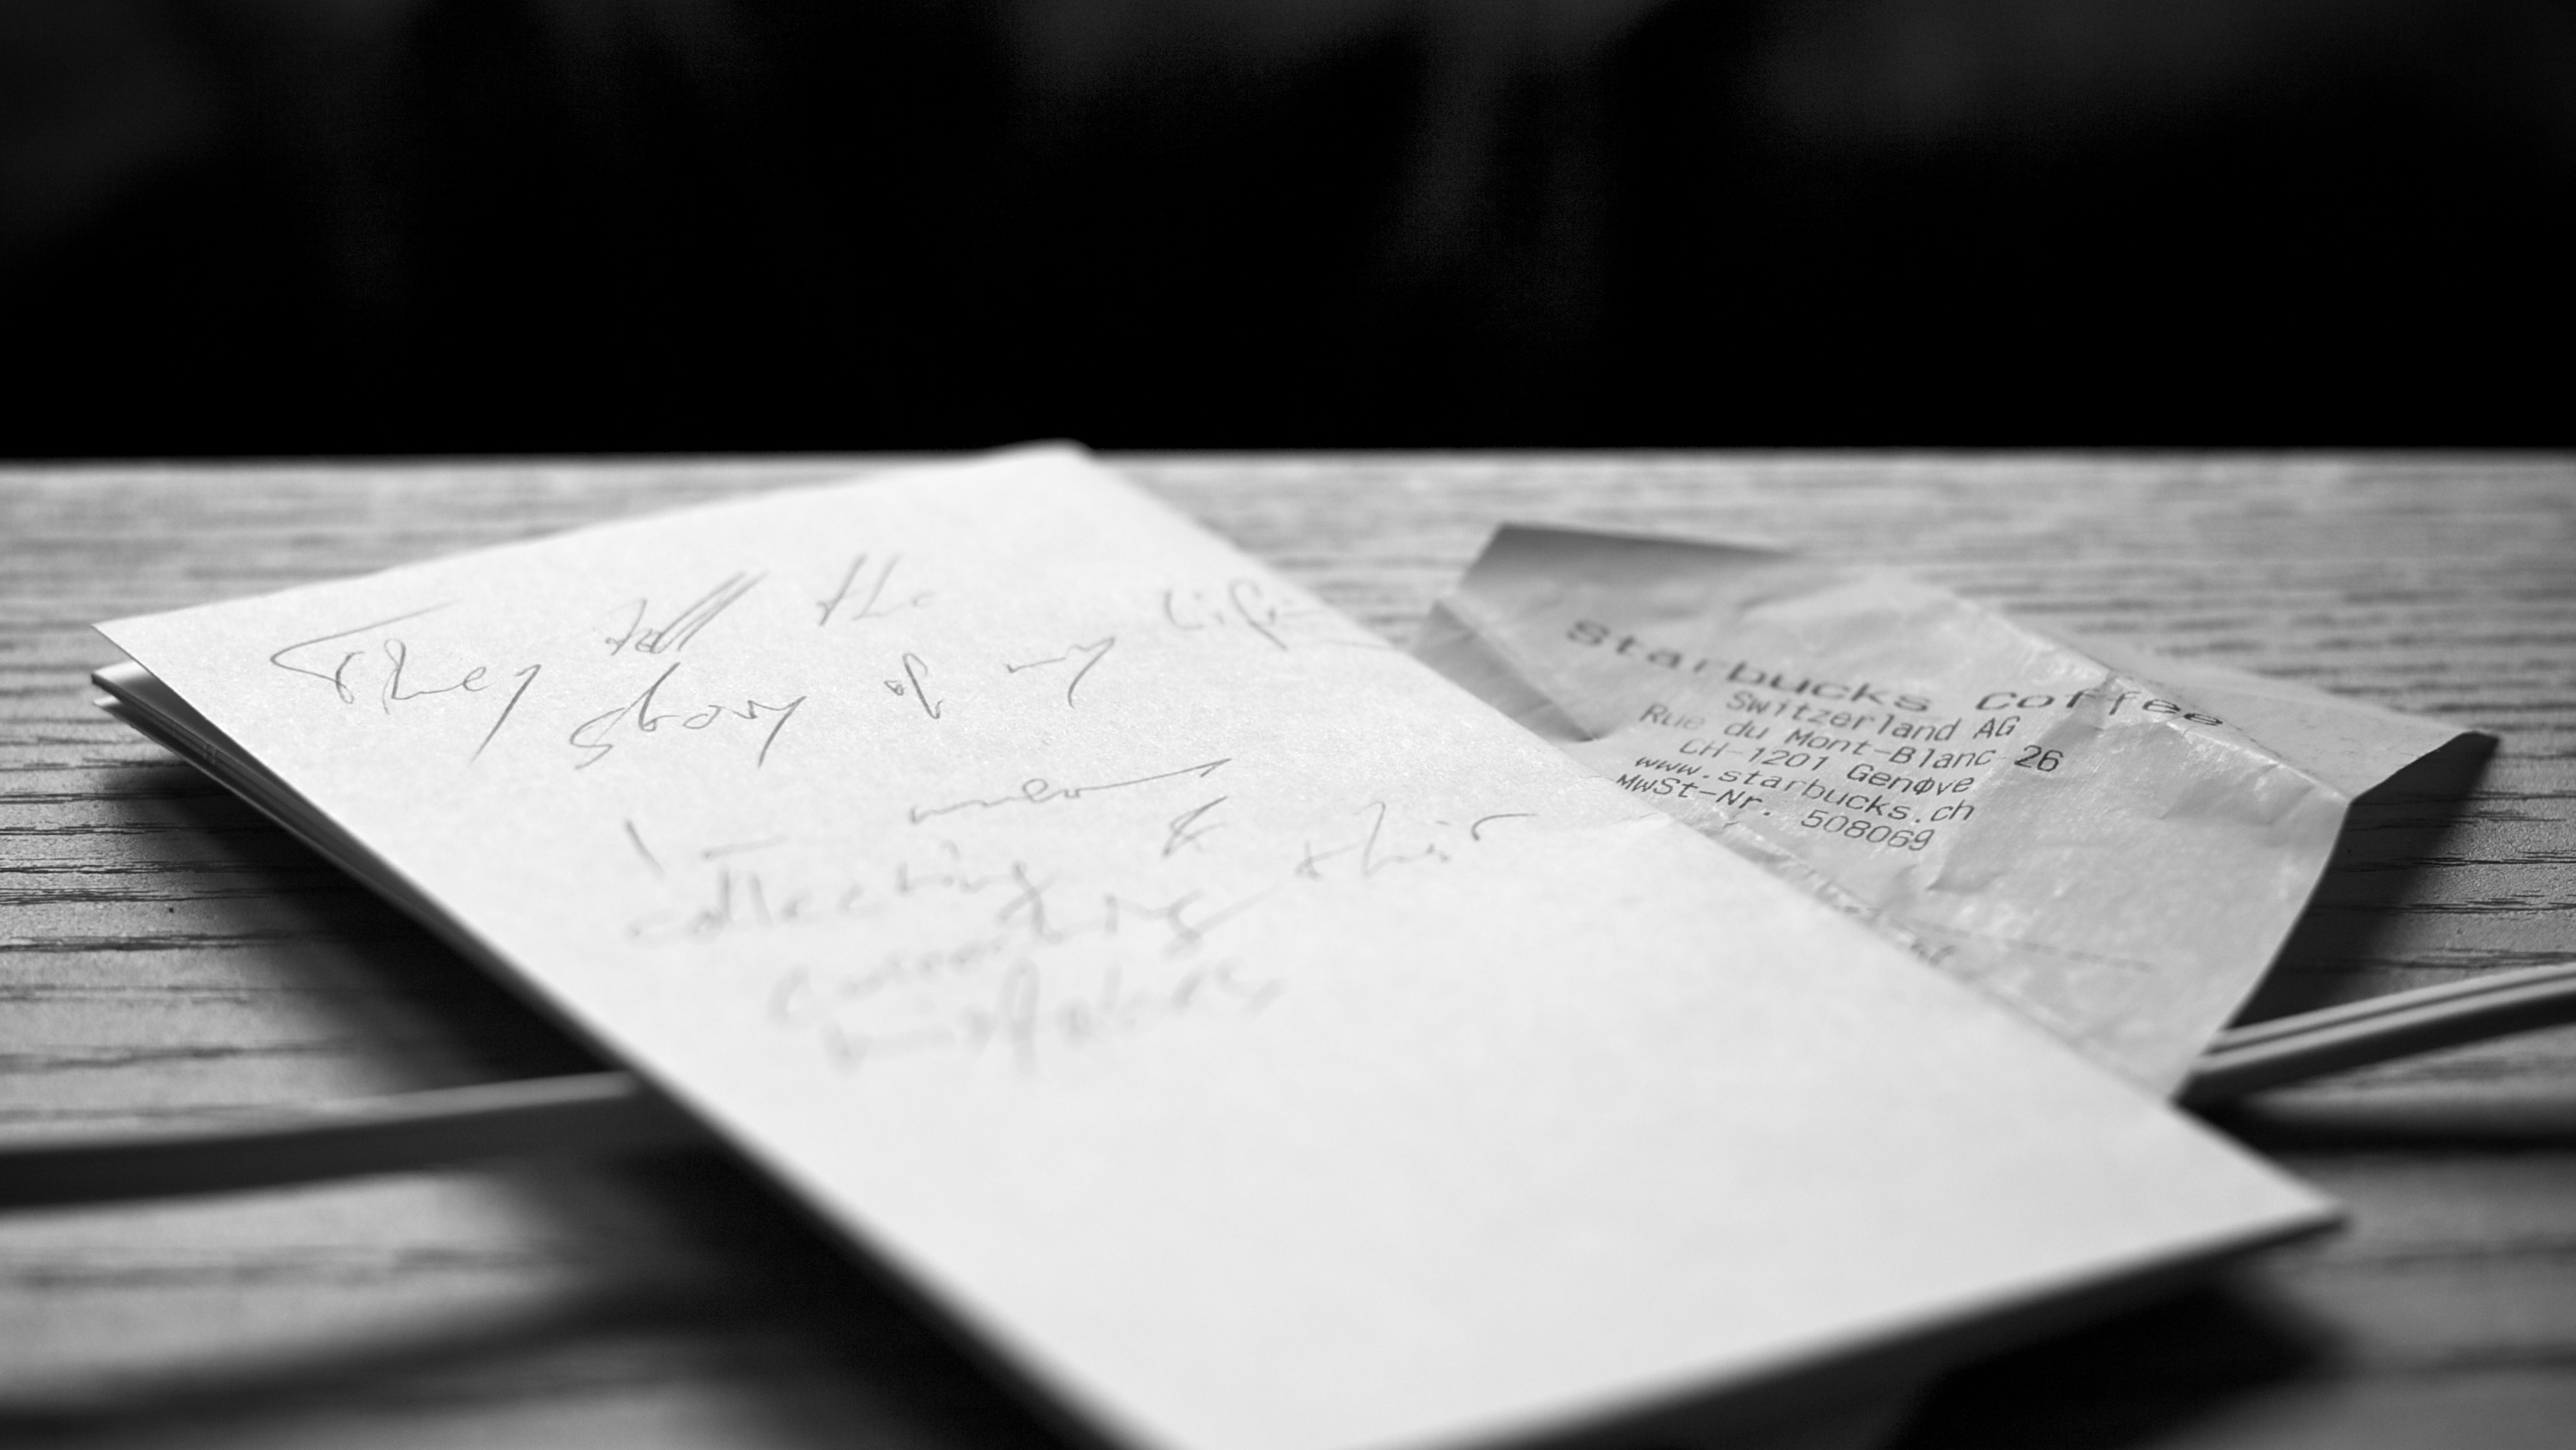 They tell the
story of my life
I mean
collecting &
correcting their
mistakes
Starbucks Coffee
Switzerland AG
Rue du Mont-Blanc 26
CH-1201 Genøve
www.starbucks.ch
MwSt-Nr. 508069